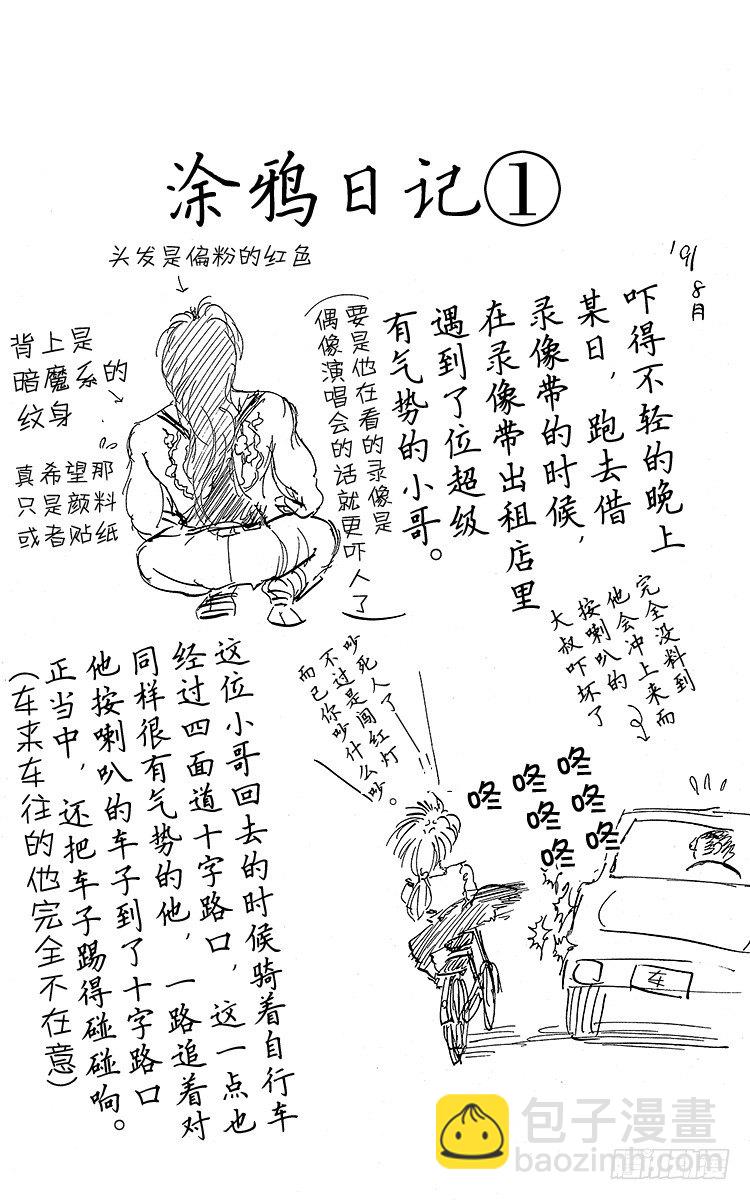 涂鸦日记①
'91
8月
吓得不轻的晚上
某日，跑去借
录像带的时候，
在录像带出租店里
遇到了位超级
有气势的小哥。
（要是他在看的录像是
偶像演唱会的话就更吓人了）
头发是偏粉的红色
背上是
暗魔系的
纹身
真希望那
只是颜料
或者贴纸
完全没料到
他会冲上来而
按喇叭的
大叔吓坏了
吵死人了
不过是闯红灯
而已你吵什么吵。
咚咚咚
咚咚
咚咚
车
这位小哥回去的时候骑着自行车
经过四面道十字路口，这一点也
同样很有气势的他，一路追着对
他按喇叭的车子到了十字路口
正当中，还把车子踢得碰碰响。
（车来车往的他完全不在意）
包子漫畫
baozimh.com